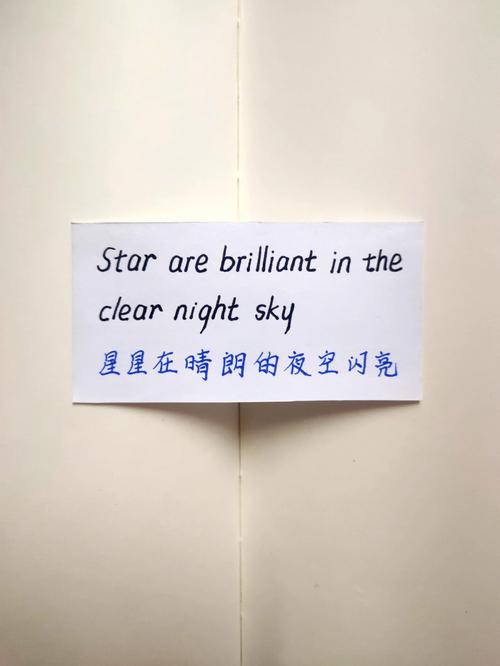 Star are brilliant in the
clear night sky
星星在晴朗的夜空闪亮